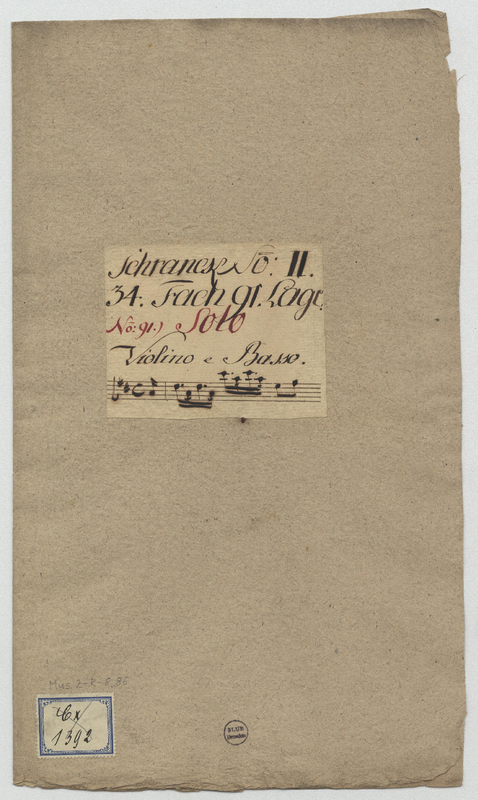 Schranck No: II.
34. Fach 91. Lage.
No: 91.) Solo
Violino e Basso.
Mus. 2-R-8,86
Cx
1392
SLUB
Dresden